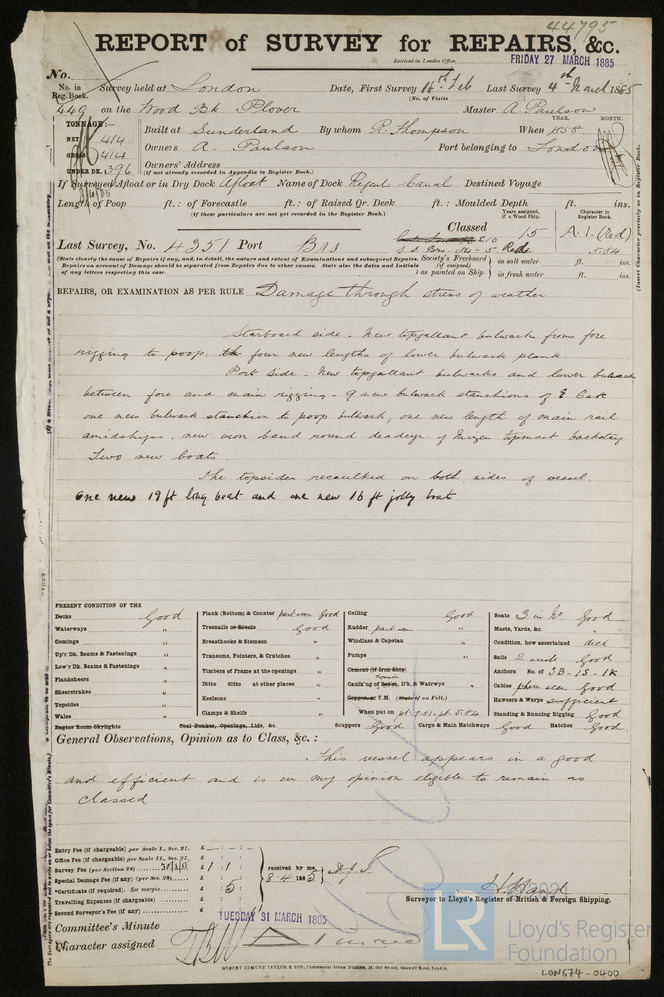 44795
REPORT of SURVEY for REPAIRS, &c.
Received in London Office.
FRIDAY 27 MARCH 1885
No.
No. in Reg. Book. Survey held at London Date, First Survey 16th Feb Last Survey 4th March 1885
(No. of Visits
449 on the Wood Bk. Plover Master A Paulson
TONNAGE:— YEAR. MONTH.
NET 414 Built at Sunderland By whom R. Thompson When 1858
GROSS 414 Owners A. Paulson Port belonging to London
UNDER DK. 396 Owners' Address
(if not already recorded in Appendix to Register Book.)
If Surveyed Afloat or in Dry Dock Afloat Name of Dock Regents Canal Destined Voyage
Length of Poop ft.: of Forecastle ft.: of Raised Qr. Deck ft.: Moulded Depth ft. ins.
(if these particulars are not yet recorded in the Register Book.)
Years assigned, if a Wood Ship. Character in Register Book.
Classed 15 A.1.(red)
Last Survey, No. 4351 Port Brs S.S. Brs. 84-5 Rede 5.84
(State clearly the cause of Repairs if any, and, in detail, the nature and extent of Examinations and subsequent Repairs. Repairs on account of Damage should be separated from Repairs due to other causes. State also the dates and Initials of any letters respecting this case.
Society's Freeboard (if assigned) as painted on Ship. in salt water ft. ins.
in fresh water ft. ins.
(Insert Character precisely as in Register Book.
REPAIRS, OR EXAMINATION AS PER RULE Damage through stress of weather
Starboard side - New topgallant bulwark from fore
rigging to poop, four new lengths of lower bulwark plank.
Port Side - New topgallant bulwarks and lower bulwark
between fore and main rigging - 9 new bulwark stanchions of E. Oak
one new bulwark stanchion to poop bulwark, one new length of main rail
amidships, new iron band round deadeye of Mizen topmast backstay
Two new boats.
The topsides recaulked on both sides of vessel.
One new 19 ft long boat and one new 16 ft jolly boat
PRESENT CONDITION OF THE
Decks Good
Waterways "
Comings "
Up'r Dk. Beams & Fastenings "
Low'r Dk. Beams & Fastenings "
Planksheers "
Sheerstrakes "
Topsides "
Wales "
Engine Room Skylights
Plank (Bottom) & Counter part seen Good
Treenails or Rivets Good
Breasthooks & Stemson "
Transoms, Pointers, & Crutches "
Timbers of Frame at the openings "
Ditto ditto at other places "
Keelsons "
Clamps & Shelfs "
Coal Bunkers, Openings, Lids, &c.
Ceiling Good
Rudder part seen "
Windlass & Capstan "
Pumps "
Cement (if Iron Ship)
Caulk'ng of Topsides, D'k, & Waterwys "
Copper, or Y.M. (State if on Felt.)
When put on pt. 9.81 pt. 5.84
Scuppers Good Cargo & Main Hatchways Good Hatches Good
Boats 3 in No. Good
Masts, Yards, &c. "
Condition, how ascertained deck
Sails 2 suits Good
Anchors No. of 3B-1S-1K
Cables where seen Good
Hawsers & Warps sufficient
Standing & Running Rigging Good
General Observations, Opinion as to Class, &c.:
This vessel appears in a good
and efficient and is in my opinion eligible to remain as
classed
Entry Fee (if chargeable) per Scale I., Sec. 27.
Office Fee (if chargeable) per Scale II., Sec. 27.
Survey Fee (per Section 28) £ 1 : 1
Special Damage Fee (if any) (per Sec. 28)
*Certificate (if required). See margin. 5
Travelling Expenses (if chargeable)
Second Surveyor's Fee (if any)
received by me,
8.4.1885
Surveyor to Lloyd's Register of British & Foreign Shipping.
TUESDAY 31 MARCH 1885
Committee's Minute
Character assigned
ROBERT EDMUND TAYLOR & SON, Commercial Steam Printers, 19, Old Street, Goswell Road, London.
LR
Lloyd's Register
Foundation
LON674-0400